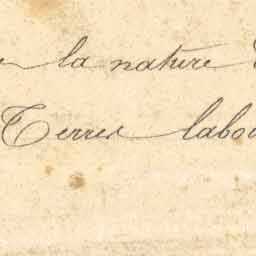 la nature
Terres labou